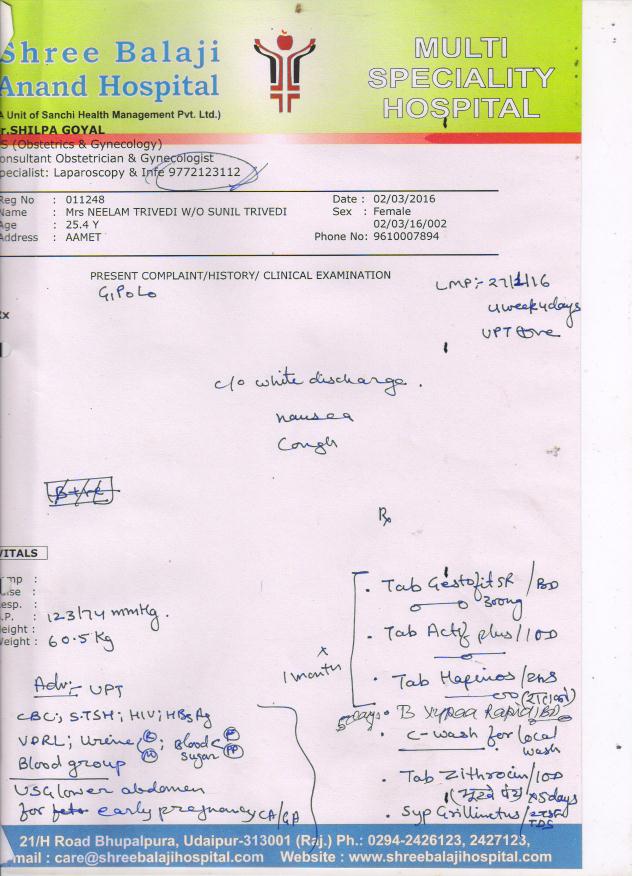 Shree Balaji
Anand Hospital
A Unit of Sanchi Health Management Pvt. Ltd.)
MULTI
SPECIALITY
HOSPITAL
r.SHILPA GOYAL
S (Obstetrics & Gynecology)
onsultant Obstetrician & Gynecologist
pecialist: Laparoscopy & Infe 9772123112
Reg No : 011248
Name : Mrs NEELAM TRIVEDI W/O SUNIL TRIVEDI
Age : 25.4 Y
Address : AAMET
Date : 02/03/2016
Sex : Female
02/03/16/002
Phone No: 9610007894
PRESENT COMPLAINT/HISTORY/ CLINICAL EXAMINATION
G1P0L0
LMP:- 27/1/16
4week4days
UPT +ve
x
c/o white discharge.
nausea
Cough
B+ve
Rx
VITALS
mp :
lse :
esp. :
.P. : 123/74 mmHg.
eight :
Weight : 60.5 Kg
Adv:- UPT
CBC; S.TSH; HIV; HBsAg
VDRL; Urine R M; Blood Sugar F PP
Blood group
USG lower abdomen
for early pregnancy CA/GA
x
1 month
• Tab Gestofit SR / BD
300mg
• Tab Actif plus / OD
• Tab Hapinos / 2HS
5days • B Rapid / BD
• C-wash for local
wash
• Tab Zithrocin / OD
x 5days
• Syp Grillinctus /
TDS
21/H Road Bhupalpura, Udaipur-313001 (Raj.) Ph.: 0294-2426123, 2427123,
mail : care@shreebalajihospital.com Website : www.shreebalajihospital.com